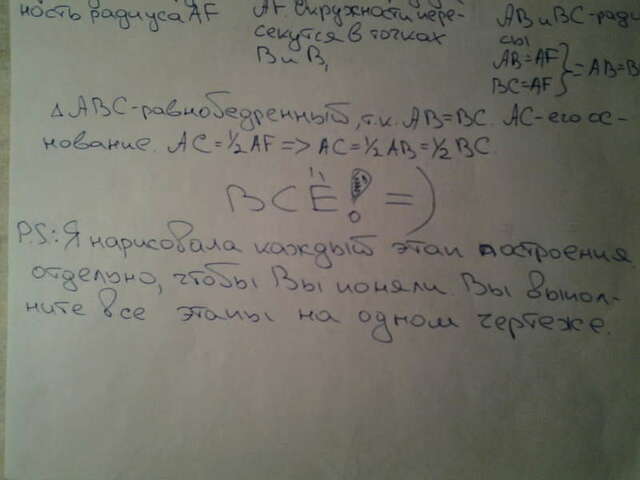 ность радиуса AF
AF. Окружности пере-
секутся в точках
B и B₁
AB и BC-ради
сы
AB=AF
BC=AF
}=>AB=B
△ABC-равнобедренный, т.к. AB=BC. AC-его ос-
нование. AC=½AF=>AC=½AB=½BC.
ВСЁ! =)
P.S: Я нарисовала каждый этап построения
отдельно, чтобы Вы поняли. Вы выпол-
ните все этапы на одном чертеже.